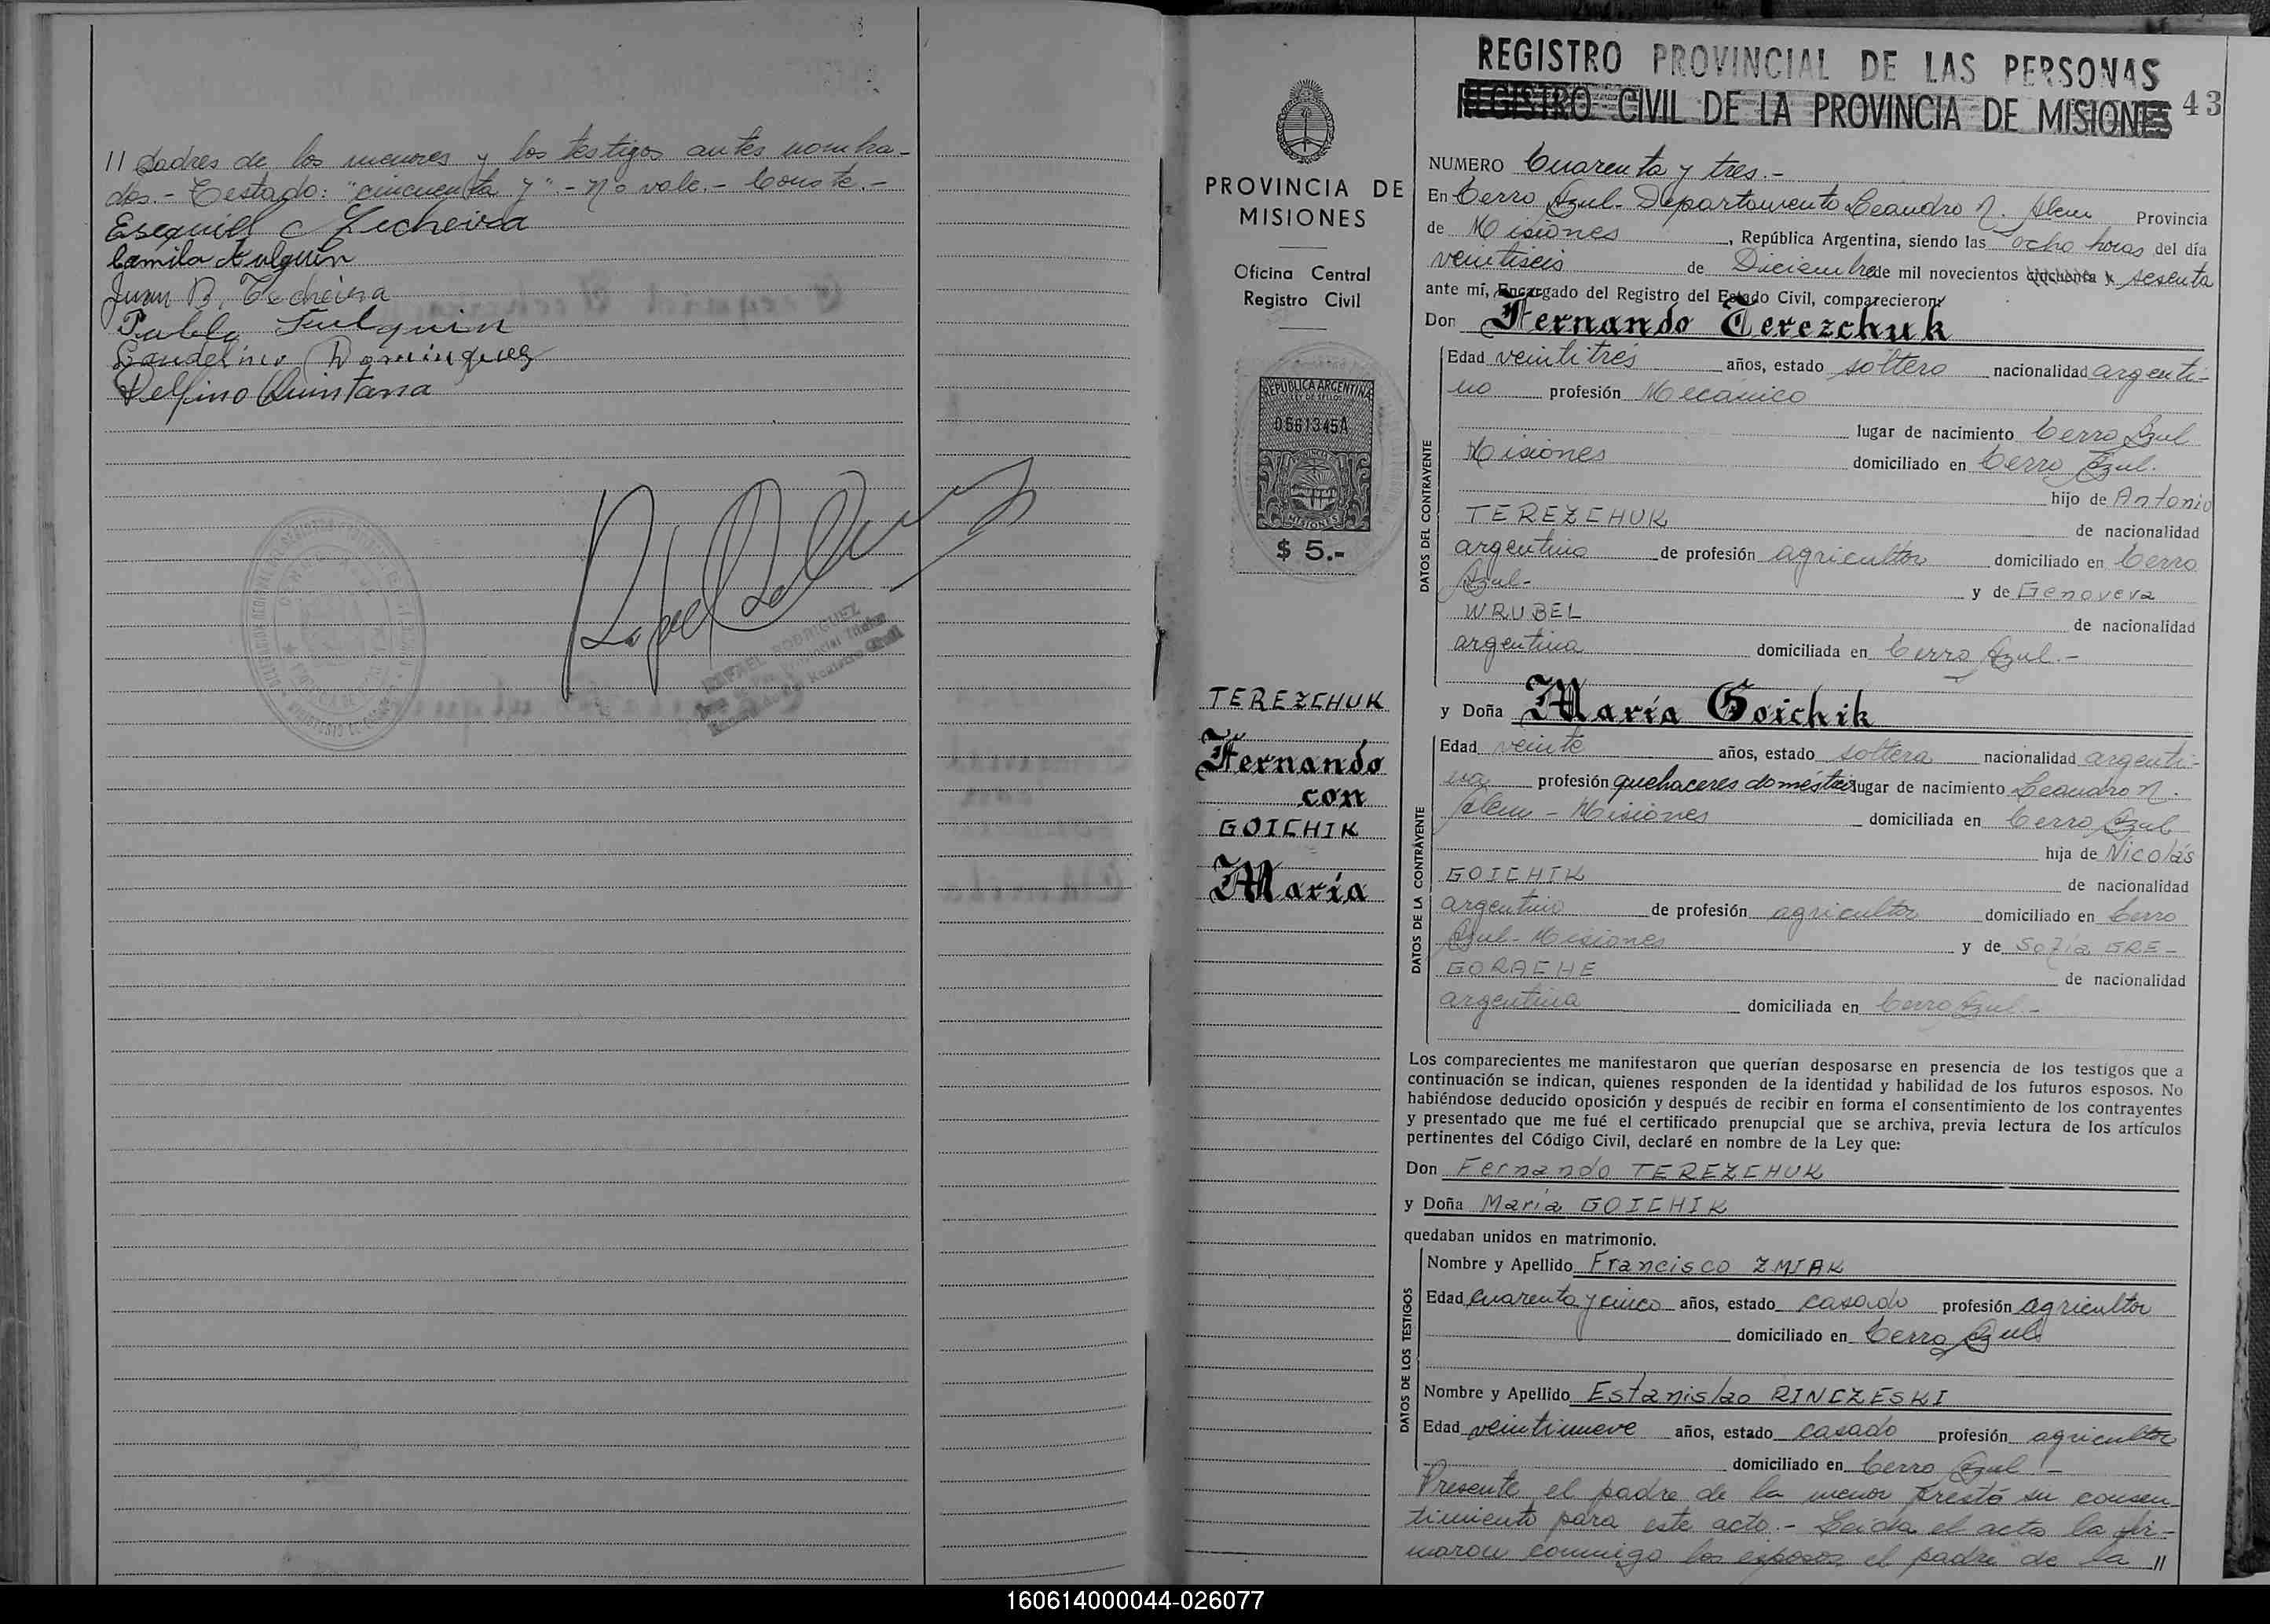 // padres de los menores y los testigos antes nombra-
dos.- Testado: "cincuenta y" - no vale.- Conste.-
Esequiel C Techeira
Camila Fulguin
Juan B. Techeira
Pablo Fulguin
Candelino Dominguez
Delfino Quintana
RAFAEL RODRIGUEZ
REGISTRO PROVINCIAL DE LAS PERSONAS
REGISTRO CIVIL DE LA PROVINCIA DE MISIONES 43
PROVINCIA DE
MISIONES
Oficina Central
Registro Civil
REPUBLICA ARGENTINA
LEY DE SELLOS
0561345A
PROVINCIA
MISIONES
$ 5.-
TEREZCHUK
Fernando
con
GOICHIK
María
NUMERO Cuarenta y tres.-
En Cerro Azul- Departamento Leandro N. Alem Provincia
de Misiones, República Argentina, siendo las ocho horas del día
veintiseis de Diciembre de mil novecientos cincuenta y sesenta
ante mí, Encargado del Registro del Estado Civil, comparecieron:
Don Fernando Terezchuk
DATOS DEL CONTRAYENTE
Edad veintitrés años, estado soltero nacionalidad argenti-
no profesión Mecánico
lugar de nacimiento Cerro Azul
Misiones domiciliado en Cerro Azul.
hijo de Antonio
TEREZCHUK de nacionalidad
argentino de profesión agricultor domiciliado en Cerro
Azul- y de Genoveva
WRUBEL de nacionalidad
argentina domiciliada en Cerro Azul.-
y Doña María Goichik
DATOS DE LA CONTRAYENTE
Edad veinte años, estado soltera nacionalidad argenti-
na profesión quehaceres domésticos lugar de nacimiento Leandro N.
Alem - Misiones domiciliada en Cerro Azul
hija de Nicolás
GOICHIK de nacionalidad
argentino de profesión agricultor domiciliado en Cerro
Azul- Misiones y de Sofía GRE-
GORACHE de nacionalidad
argentina domiciliada en Cerro Azul.-
Los comparecientes me manifestaron que querían desposarse en presencia de los testigos que a
continuación se indican, quienes responden de la identidad y habilidad de los futuros esposos. No
habiéndose deducido oposición y después de recibir en forma el consentimiento de los contrayentes
y presentado que me fué el certificado prenupcial que se archiva, previa lectura de los artículos
pertinentes del Código Civil, declaré en nombre de la Ley que:
Don Fernando TEREZCHUK
y Doña María GOICHIK
quedaban unidos en matrimonio.
DATOS DE LOS TESTIGOS
Nombre y Apellido Francisco ZMIAK
Edad cuarenta y cinco años, estado casado profesión agricultor
domiciliado en Cerro Azul
Nombre y Apellido Estanislao RINCZESKI
Edad veintinueve años, estado casado profesión agricultor
domiciliado en Cerro Azul -
Presente el padre de la menor prestó su consen-
timiento para este acto.- Leída el acta la fir-
maron conmigo los esposos el padre de la //
160614000044-026077